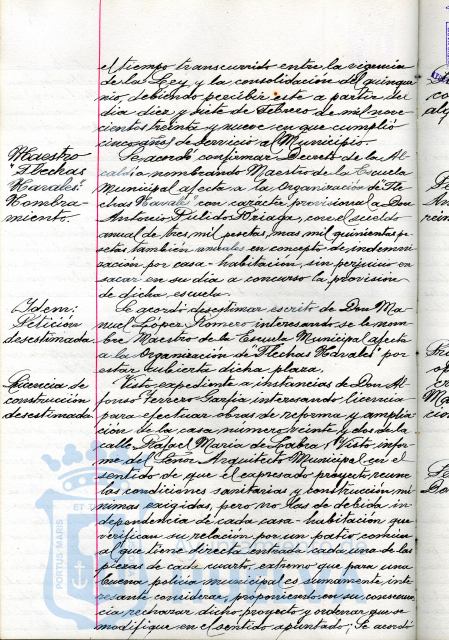 el tiempo transcurrido entre la vigencia
de la Ley y la consolidación del quinque
nio, debiendo percibir este a partir del
día diez y siete de Febrero de mil nove
cientos treinta y nueve en que cumplió
cinco años de servicio al Municipio.
Maestro
"Flechas
Navales"
Nombra-
miento.
Se acordó confirmar Decreto de la Al
caldía nombrando Maestro de la Escuela
Municipal afecta a la Organización de "Fle
chas Navales" con carácter provisional a Don
Antonio Pulido con el sueldo
anual de tres mil pesetas, mas mil quinientas pe
setas también anuales en concepto de indemni
zación por casa-habitación, sin perjuicio en
sacar en su día a concurso la provisión
de dicha escuela.
Idem:
Petición
desestimada.
Se acordó desestimar escrito de Don Ma
nuel López Romero interesando se le nom
bre Maestro de la Escuela Municipal afecta
a la Organización de "Flechas Navales" por
estar cubierta dicha plaza.
Licencia de
construcción
desestimada
Visto expediente a instancias de Don Al
fonso Ferrero Garfia interesando licencia
para efectuar obras de reforma y amplia
ción de la casa número veinte y dos de la
calle Rafael María de Labra; Visto infor
me del Señor Arquitecto Municipal en el
sentido de que el expresado proyecto reune
las condiciones sanitarias y construcción mí
nimas exigidas, pero no las de debida in
dependencia de cada casa-habitación que
verifican su relación por un patio común
al que tiene directa entrada cada una de las
piezas de cada cuarto, extremo que para una
buena policía municipal es sumamente inte
resante considerar, proponiendo en su consecuen
cia rechazar dicho proyecto y ordenar que se
modifique en el sentido apuntado; Se acordó
PORTUS MARIS
ET